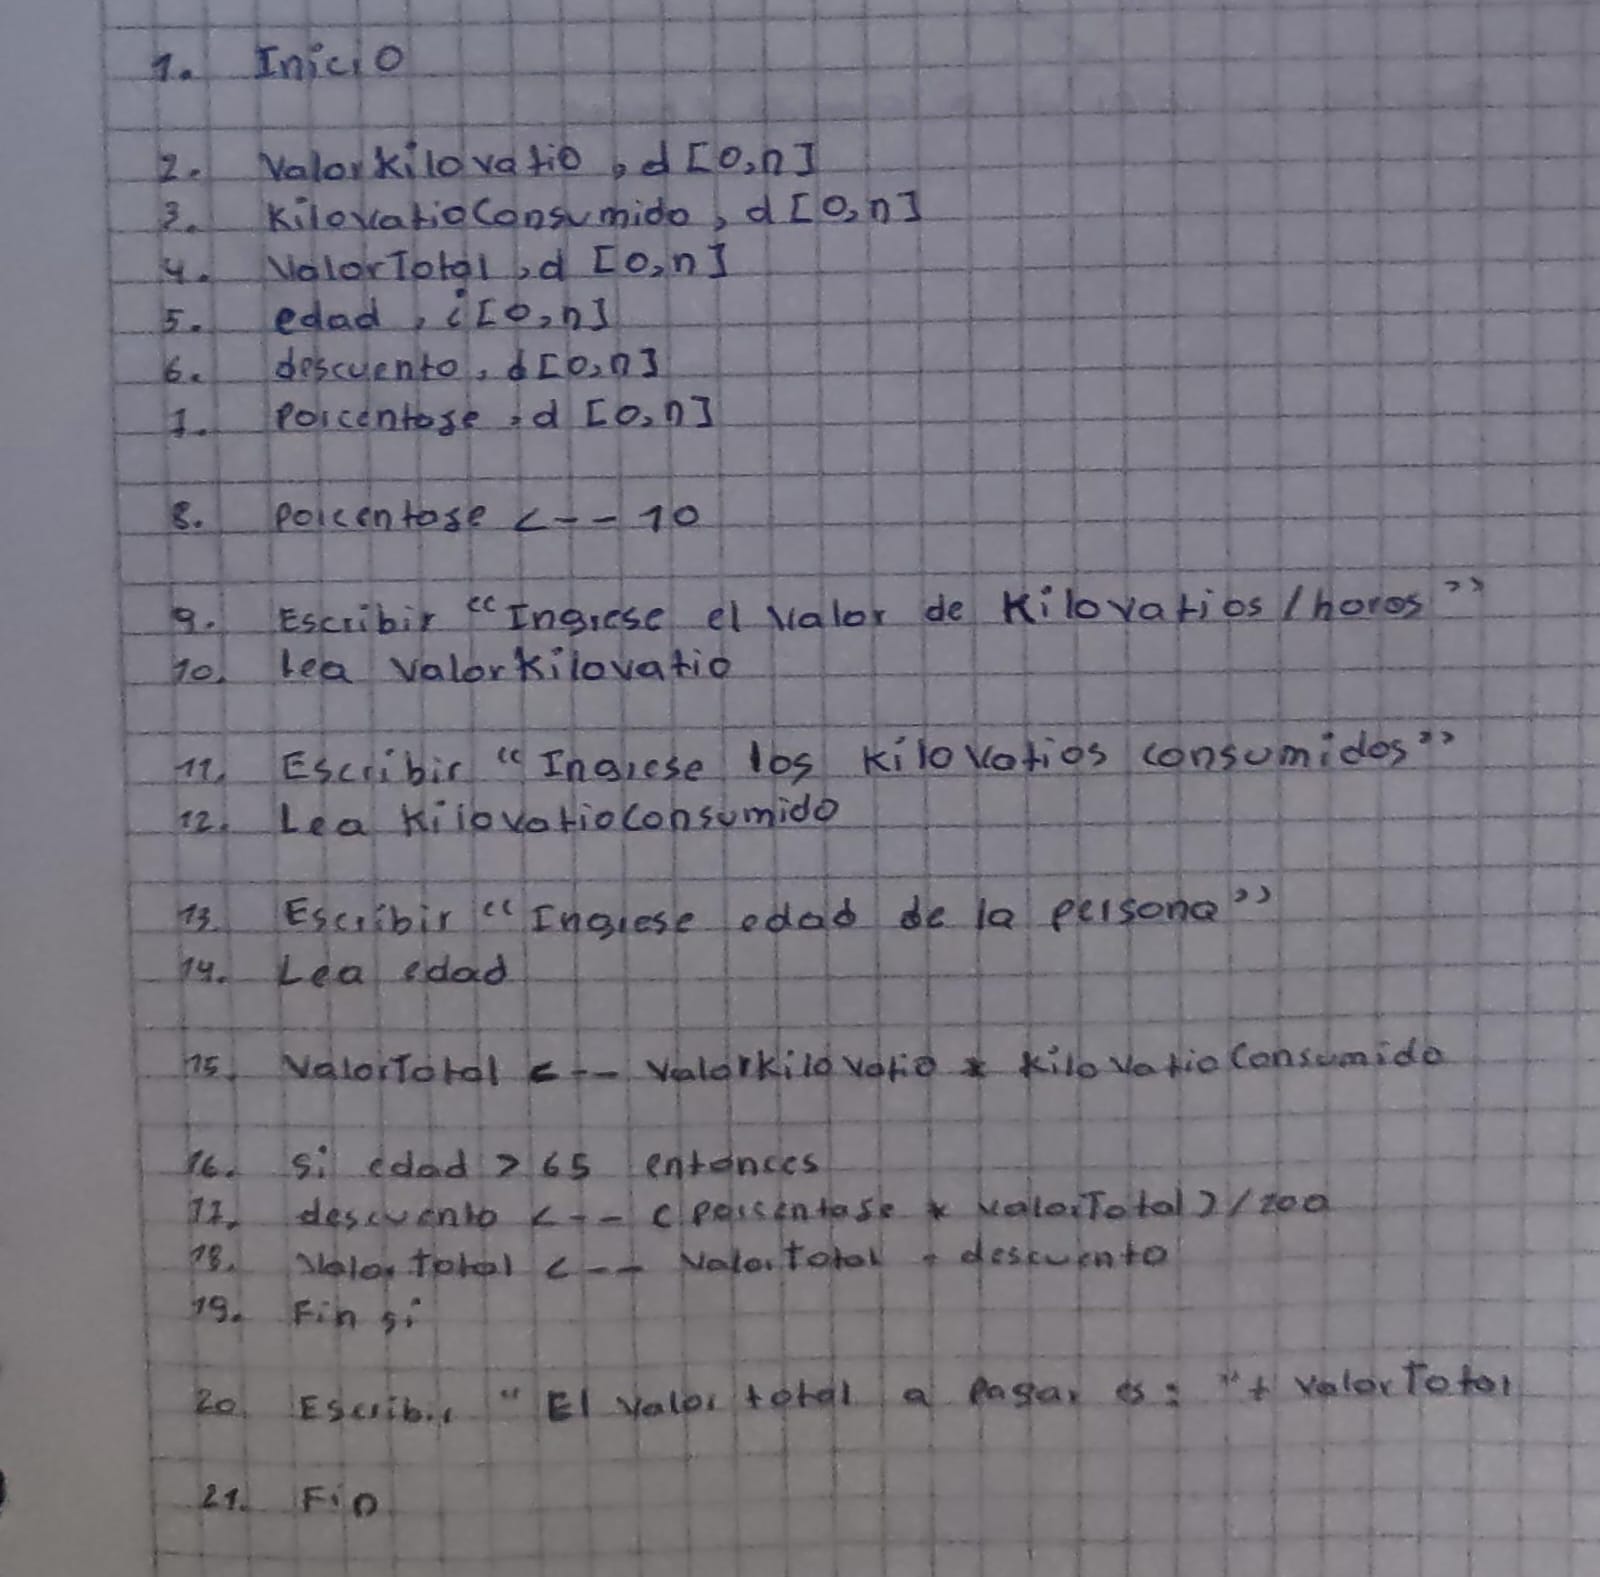 1. Inicio
2. ValorKilovatio, d [0,n]
3. KilovatioConsumido, d [0,n]
4. ValorTotal, d [0,n]
5. edad, i [0,n]
6. descuento, d [0,n]
7. Porcentaje, d [0,n]
8. porcentaje <-- 10
9. Escribir "Ingrese el Valor de Kilovatios/horas"
10. Lea ValorKilovatio
11. Escribir "Ingrese los Kilovatios consumidos"
12. Lea KilovatioConsumido
13. Escribir "Ingrese edad de la persona"
14. Lea edad
15. ValorTotal <-- ValorKilovatio * KilovatioConsumido
16. Si edad > 65 entonces
17. descuento <-- (porcentaje * valorTotal) / 100
18. ValorTotal <-- ValorTotal descuento
19. Fin si
20. Escribir "El valor total a Pagar es: "+ ValorTotal
21. Fin